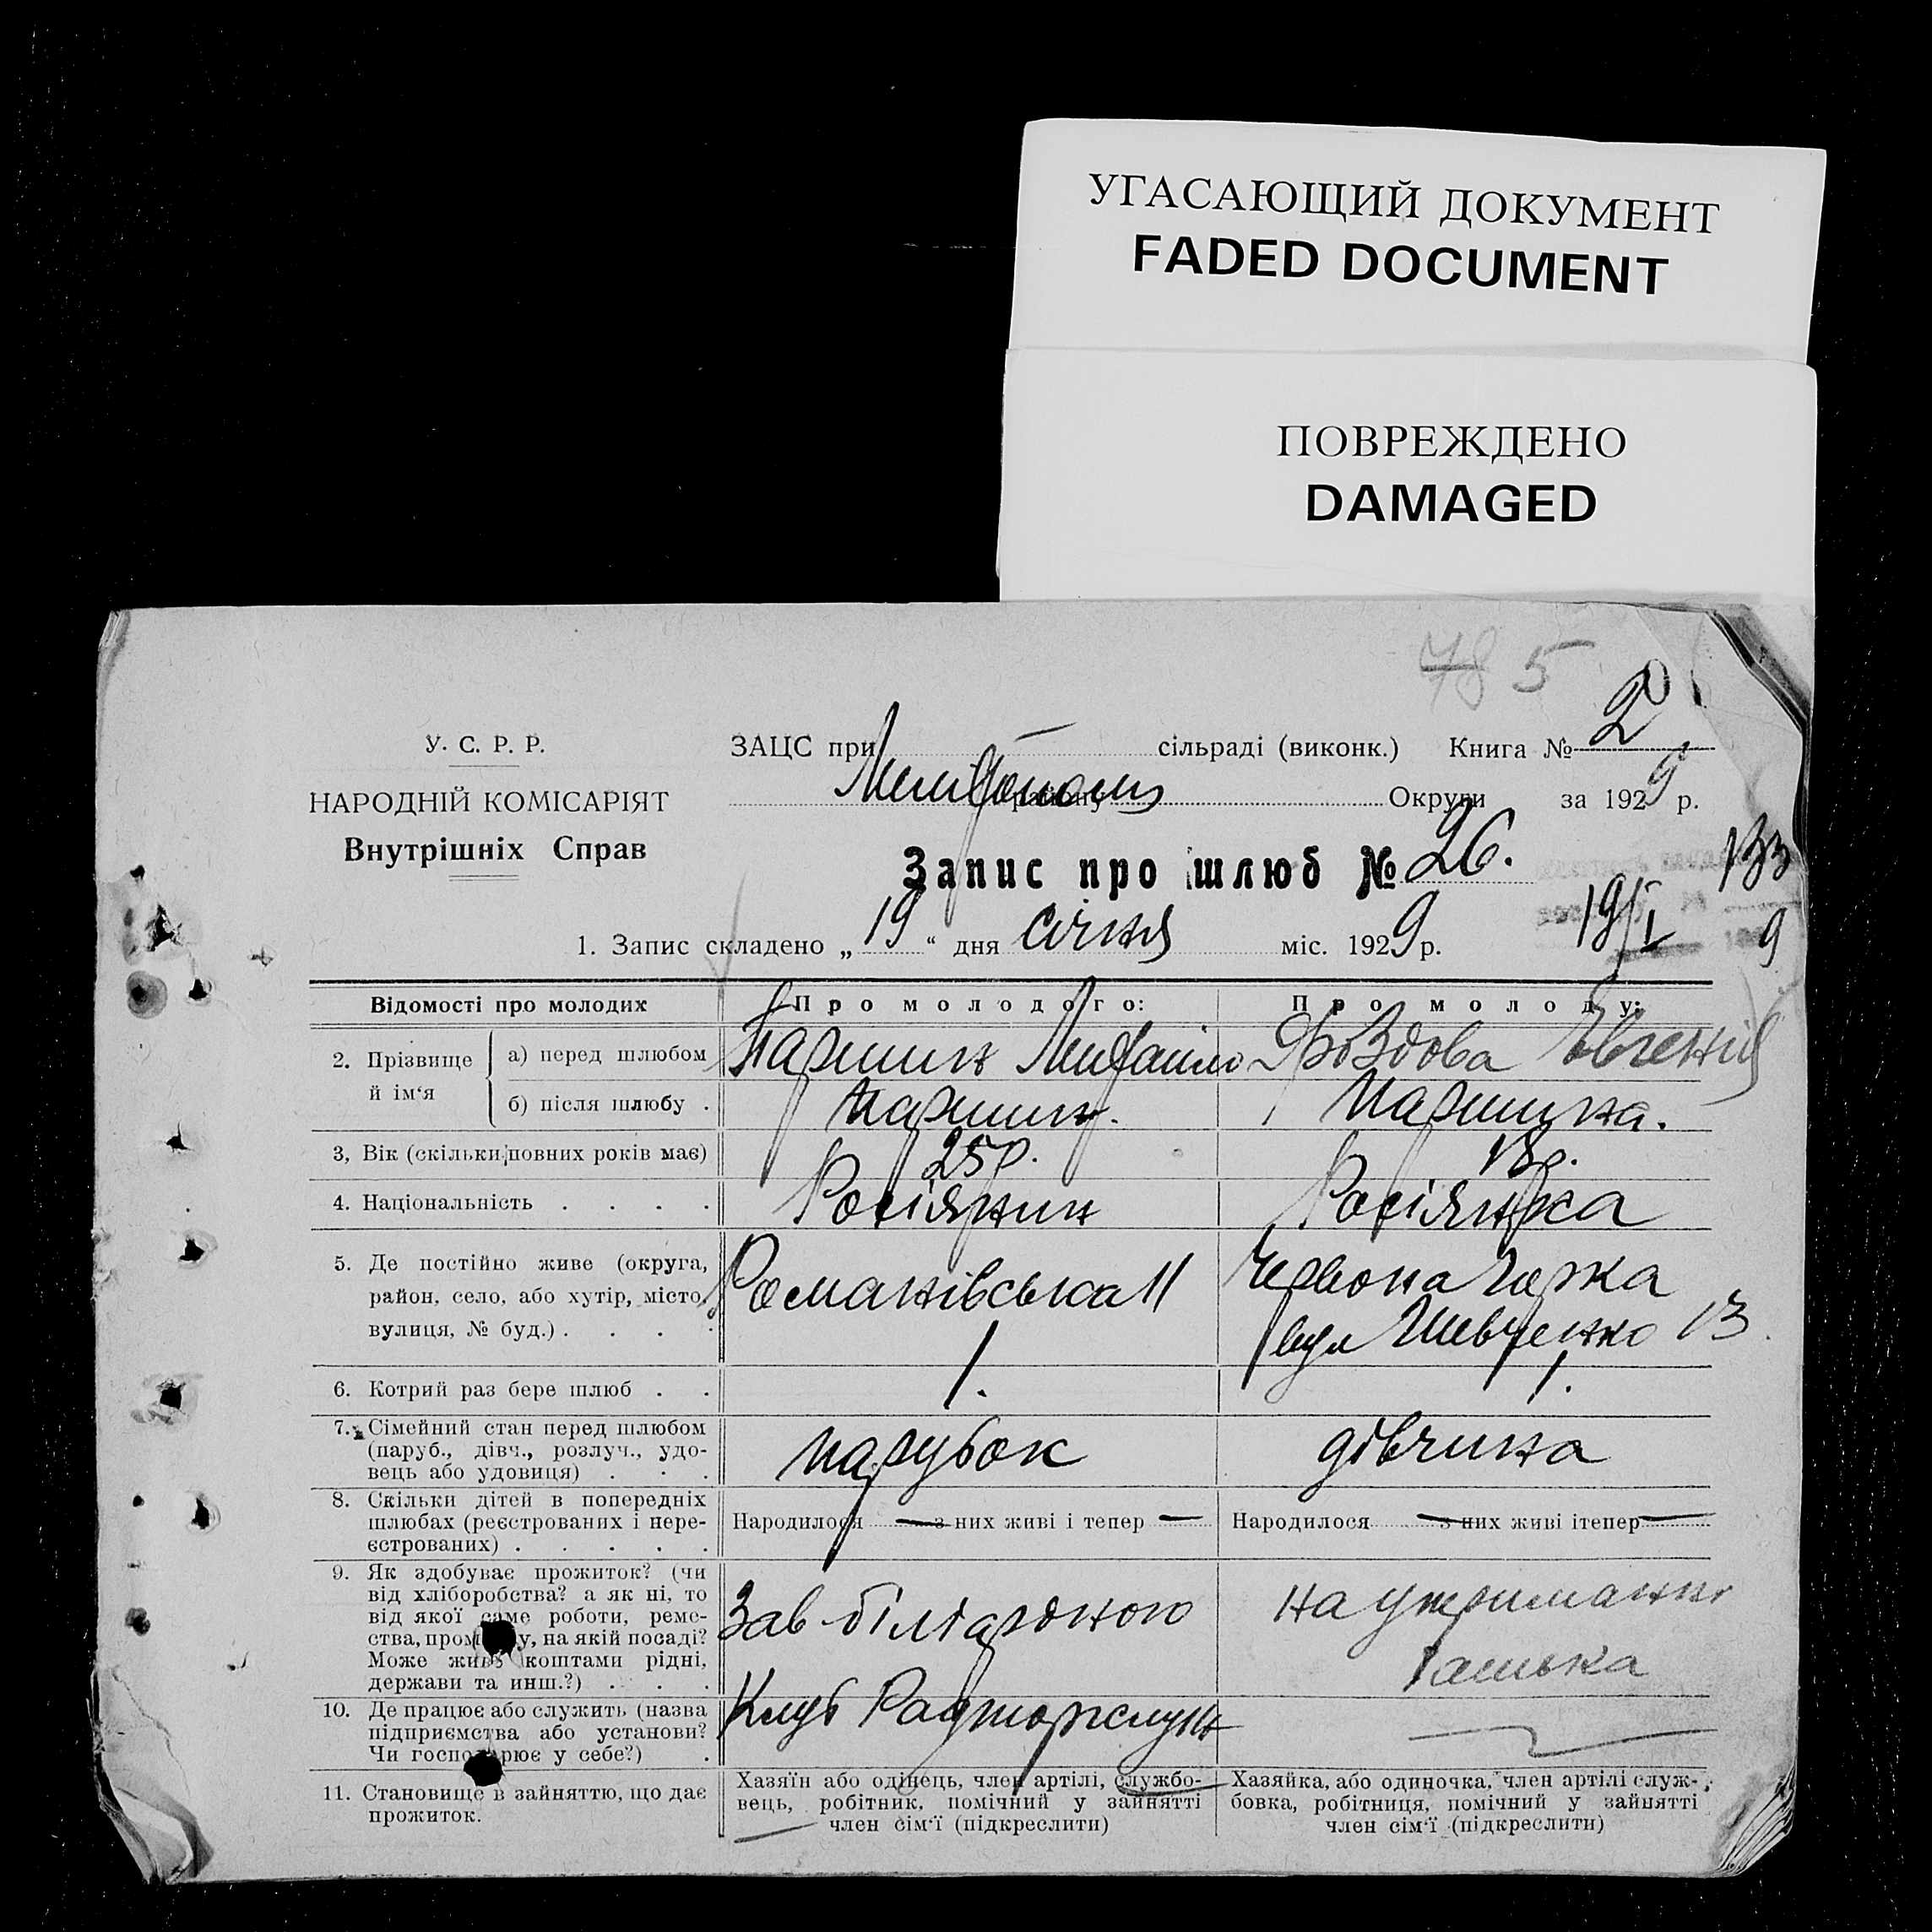 УГАСАЮЩИЙ ДОКУМЕНТ
FADED DOCUMENT
ПОВРЕЖДЕНО
DAMAGED
78 5
У. С. Р. Р.
НАРОДНІЙ КОМІСАРІЯТ
Внутрішніх Справ
ЗАЦС при — сільраді (виконк.) Книга № 2
Мелітополь району Округи за 1929 р.
Запис про шлюб № 26.
133
1. Запис складено „ 19 “ дня січня міс. 1929 р.
19/I 9
Відомості про молодих
Про молодого:
Про молоду:
2. Прізвище й ім‘я
а) перед шлюбом
Паршин Михайло
Дроздова Євгенія
б) після шлюбу .
Паршин.
Паршина.
3, Вік (скільки повних років має)
25 р.
18 р.
4. Національність . . . .
Росіянин
Росіянка
5. Де постійно живе (округа,
район, село, або хутір, місто,
вулиця, № буд.) . . . .
Романівська 11
Червона Гірка
вул Шевченко 13
6. Котрий раз бере шлюб . .
1.
1.
7. Сімейний стан перед шлюбом
(паруб., дівч., розлуч., удо-
вець або удовиця) . . .
парубок
дівчина
8. Скільки дітей в попередніх
шлюбах (реєстрованих і нере-
єстрованих) . . . . .
Народилося — з них живі і тепер —
Народилося — з них живі ітепер —
9. Як здобуває прожиток? (чи
від хліборобства? а як ні, то
від якої саме роботи, реме-
ства, пром у, на якій посаді?
Може живе коштами рідні,
держави та инш.?) . . .
Зав більярдною
на утриманні
батька
10. Де працює або служить (назва
підприємства або установи?
Чи господарює у себе?) .
Клуб Радторгслуж
11. Становище в зайняттю, що дає
прожиток.
Хазяїн або одінець, член артілі, службо-
вець, робітник, помічний у зайнятті
член сім‘ї (підкреслити)
Хазяйка, або одиночка, член артілі служ-
бовка, робітниця, помічний у зайнятті
член сім‘ї (підкреслити)